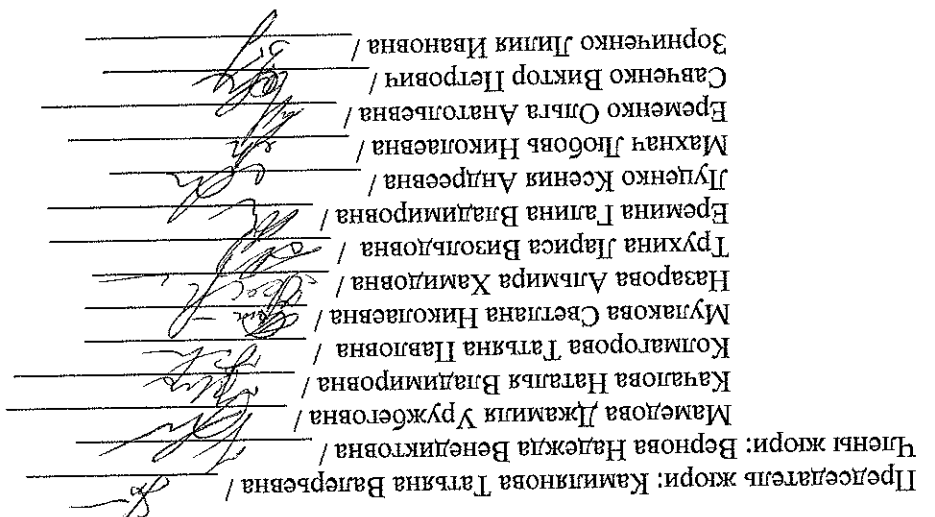 Председатель жюри: Камилянова Татьяна Валерьевна /
Члены жюри: Вернова Надежда Венедиктовна /
Мамедова Джамиля Уружбеговна /
Качалова Наталья Владимировна /
Колмагорова Татьяна Павловна /
Мулакова Светлана Николаевна /
Назарова Альмира Хамидовна /
Трухина Лариса Визольдовна /
Еремина Галина Владимировна /
Луценко Ксения Андреевна /
Махнач Любовь Николаевна /
Еременко Ольга Анатольевна /
Савченко Виктор Петрович /
Зорниченко Лилия Ивановна /